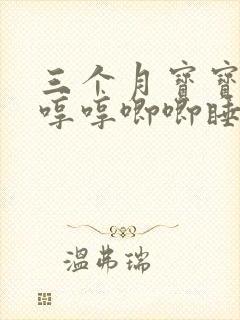 三个月寶寶
哼哼唧唧睡
温弗瑞